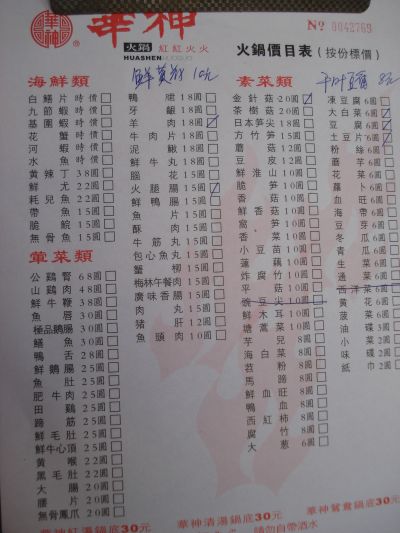 華神
火鍋 紅紅火火
HUASHEN HUOGUO
Nº 0042769
火鍋價目表（按份標價）
海鮮類
白鱔片 時價
九節蝦 時價
基圍蝦 時價
花蟹 時價
河蝦 時價
水魚 時價
黃辣丁 38圓
鮮尤 22圓
耗兒魚 22圓
帶魚 15圓
脆鯇 15圓
無骨魚 15圓
葷菜類
公鷄腎 68圓
山鷄肉 48圓
鮮牛鞭 38圓
魚唇 30圓
極品鵝腸 30圓
鱔魚 30圓
鴨舌 28圓
鮮鵝腸 25圓
魚肚 25圓
肥牛肉 25圓
田鷄 25圓
蹄筋 25圓
鮮毛肚 25圓
鮮牛心頂 25圓
黃喉 22圓
黑毛肚 22圓
大腸 20圓
腰片 20圓
無骨鳳爪 20圓
鴨𦟌 18圓
牙齦 18圓
羊肉 18圓
牛肉片 18圓
泥鰍 18圓
鮮牛丸 18圓
腦花 15圓
火腿腸 15圓
鮮鴨腸 15圓
魚片 15圓
酥肉 15圓
牛筋丸 15圓
包心魚丸 15圓
蟹柳 15圓
梅林午餐肉 15圓
廣味香腸 15圓
肉丸 15圓
豬肝 12圓
魚頭肉 10圓
素菜類
金針菇 20圓
茶樹菇 20圓
日本笋尖 18圓
方竹笋 15圓
蘑菇 12圓
豆皮 12圓
鮮淮山 10圓
脆笋 10圓
香菇 10圓
鮮香菇 10圓
窩笋 10圓
香菜 10圓
小豆苗 10圓
蓮藕 10圓
炸腐竹 10圓
平菇 10圓
豌豆尖 10圓
鮮木耳 10圓
塘蒿菜 10圓
芋兒 8圓
海白菜 8圓
苕粉 8圓
馬蹄 8圓
鮮血旺 8圓
鴨血 8圓
西紅柿 8圓
腐竹 8圓
大葱 6圓
凍豆腐 6圓
大白菜 6圓
豆腐 6圓
土豆片 6圓
粉絲 6圓
蘑芋 6圓
花菜 6圓
蘿卜 6圓
血旺 6圓
海帶 6圓
豆芽 6圓
冬瓜 6圓
青瓜 6圓
生菜 6圓
通菜 6圓
西洋菜 6圓
黃花 6圓
菠菜 6圓
油碟 3圓
小菜 2圓
味碟 2圓
紙巾 2圓
華神紅湯鍋底30元 華神清湯鍋底30元 華神鴛鴦鍋底30元
請勿自帶酒水